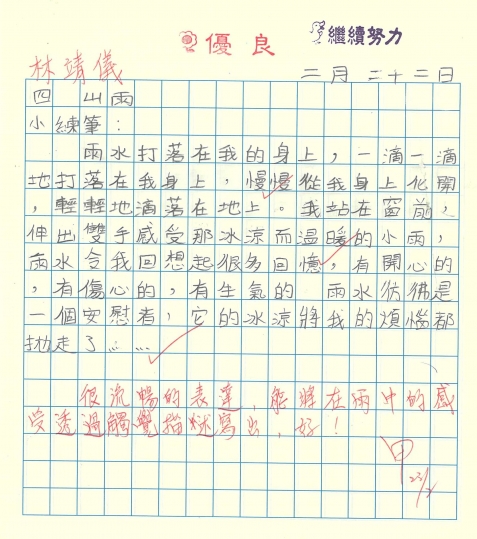 優良
繼續努力
林靖儀
二月二十二日
四 山雨
小練筆：
雨水打落在我的身上，一滴一滴
地打落在我身上，慢慢從我身上化開
，輕輕地滴落在地上。我站在窗前，
伸出雙手感受那冰涼而溫暖的小雨，
雨水令我回想起很多回憶，有開心的
，有傷心的，有生氣的 雨水彷彿是
一個安慰者，它的冰涼將我的煩惱都
拋走了……
很流暢的表達，能將在雨中的感
受透過觸覺描述寫出，好！
甲
22/2